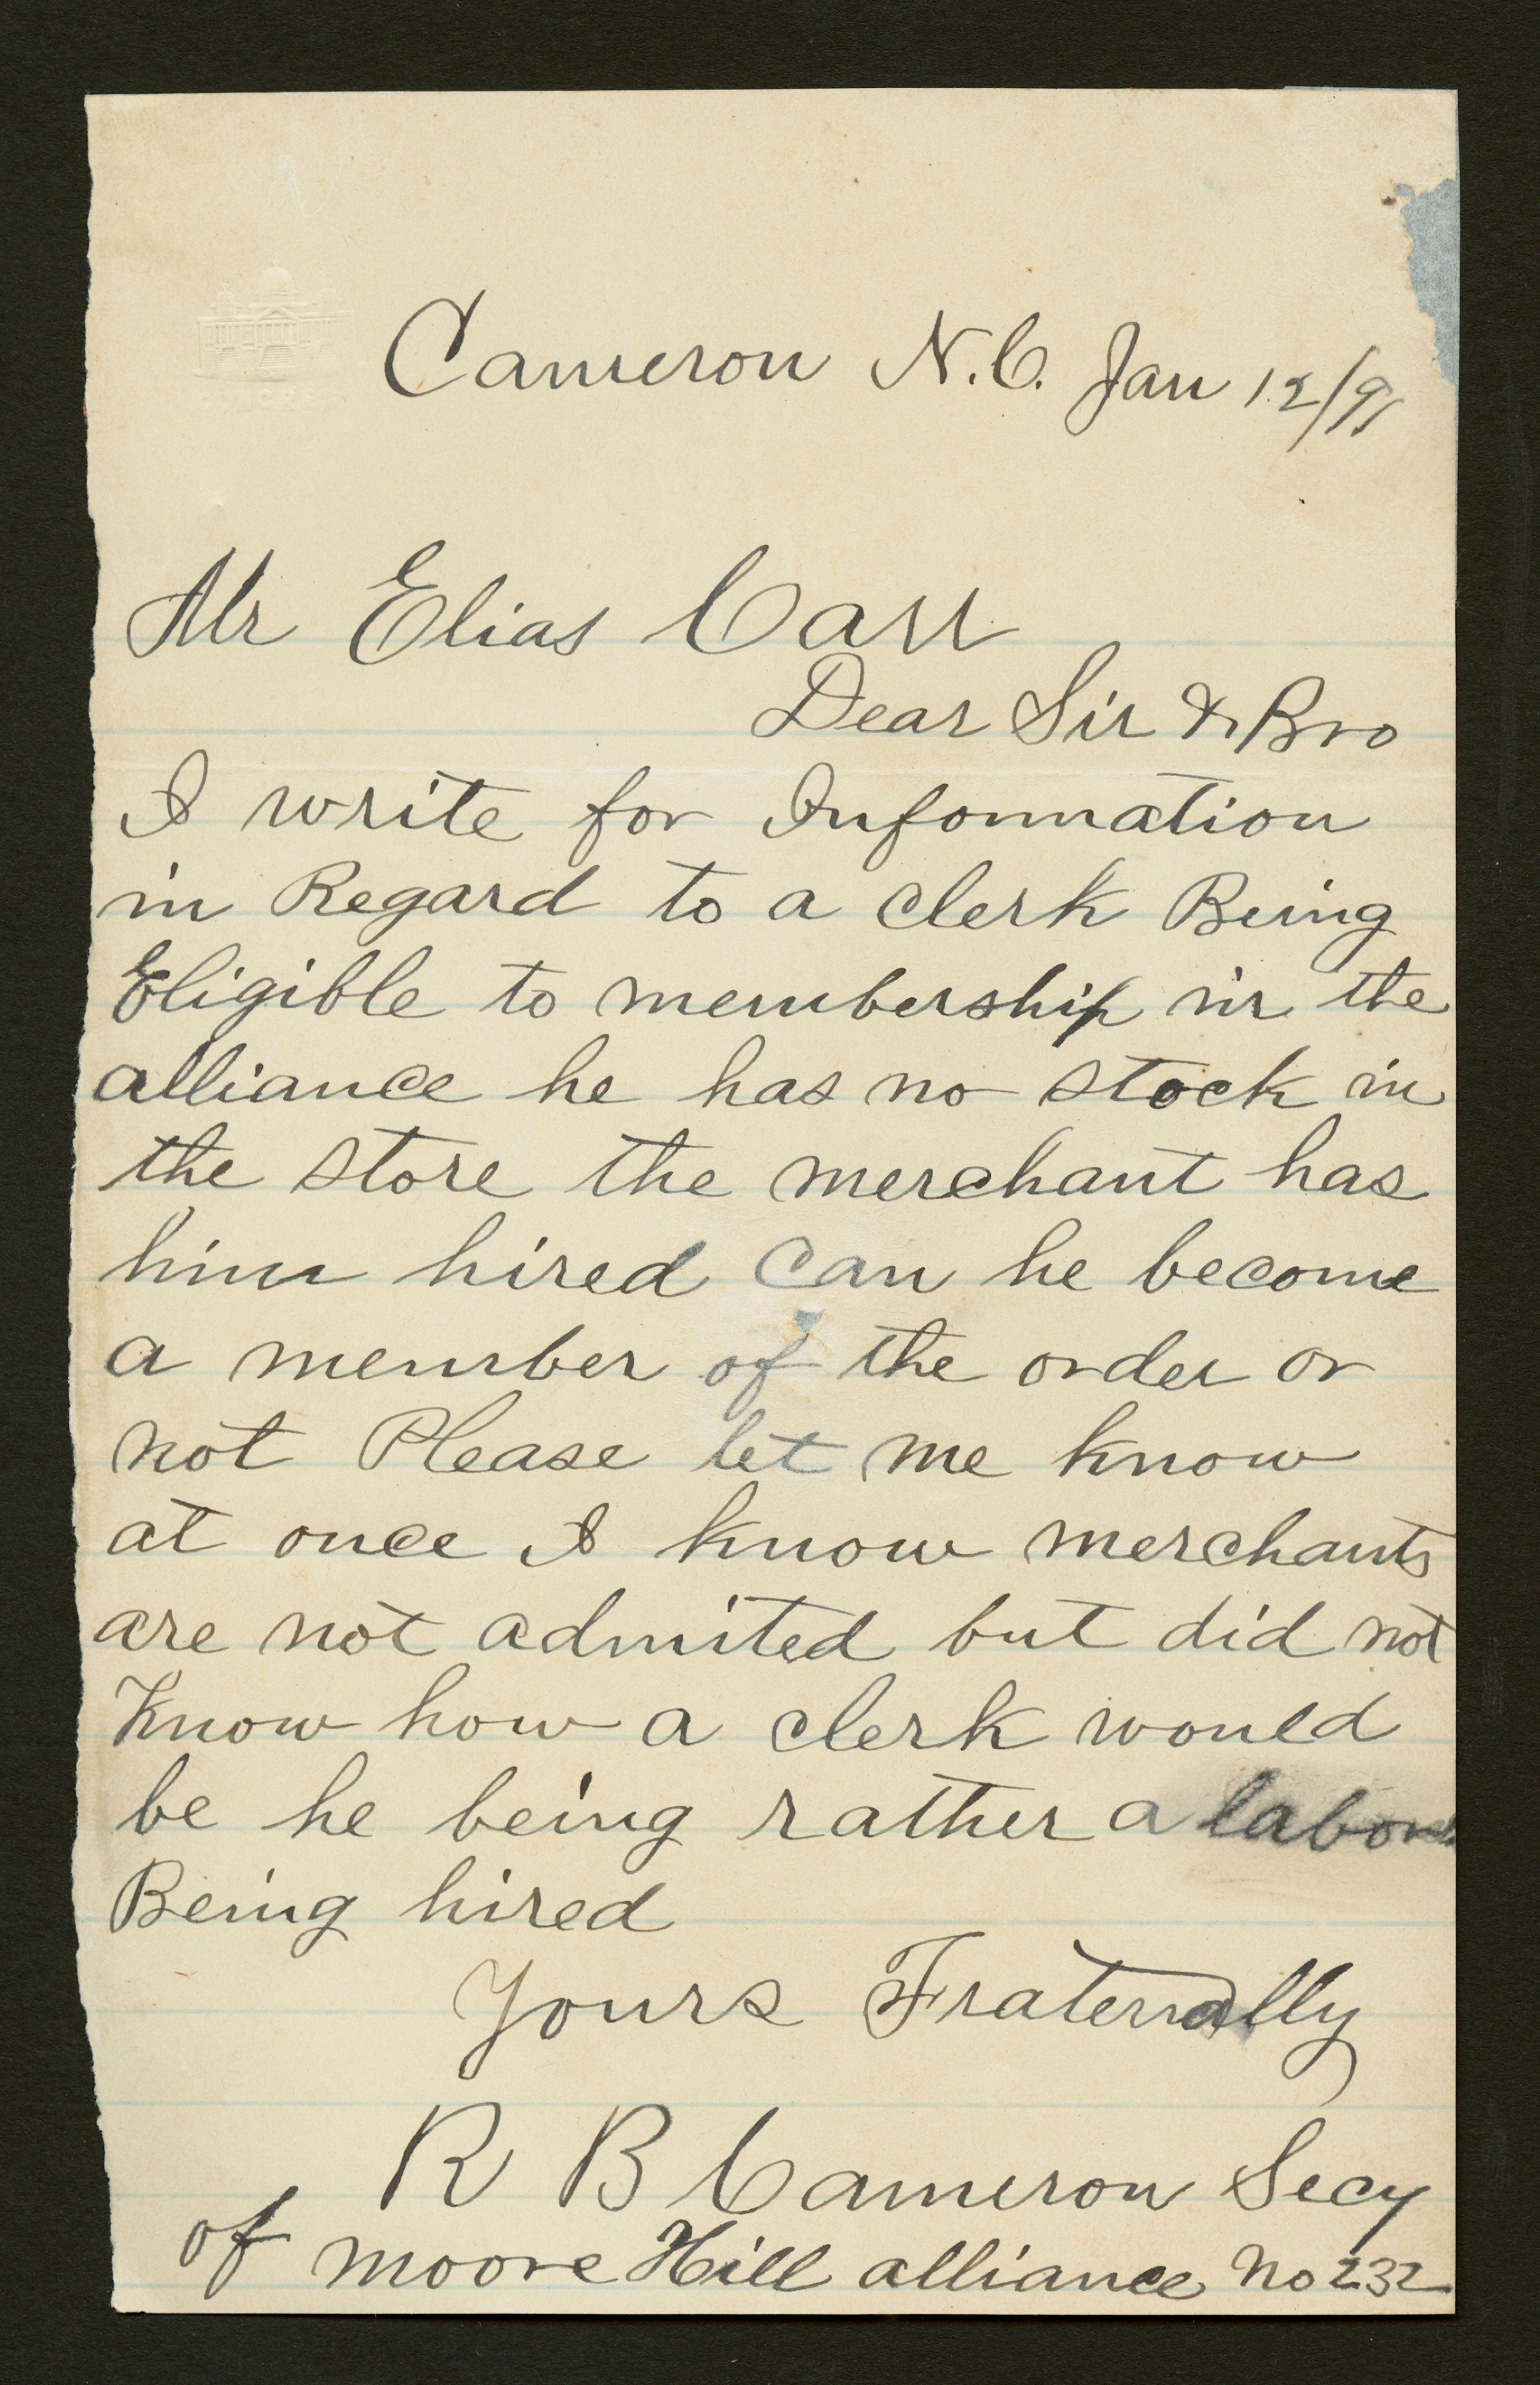 Cameron N.C. Jan 12/91
Mr Elias Carr
Dear Sir & Bro
I write for Information
in Regard to a clerk Being
Eligible to membership in the
alliance he has no stock in
the store the merchant has
him hired can he become
a member of the order or
not Please let me know
at once I know merchants
are not admited but did not
Know how a clerk would
be he being rather a labor
Being hired
Yours Fraternally
R B Cameron Secy
of moore Hill alliance No 232